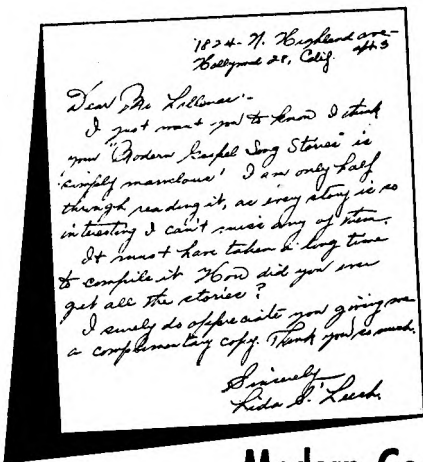 1824 - N. Highland ave -
Hollywood 28, Calif. apt 3
Dear Mr. Lillenas: -
I just want you to know I think
your "Modern Gospel Song Stories" is
simply marvelous! I am only half
through reading it, as every story is so
interesting I can't miss any of them.
It must have taken a long time
to compile it. How did you ever
get all the stories?
I surely do appreciate you giving me
a complimentary copy. Thank you so much.
Sincerely
Lida S. Leech.